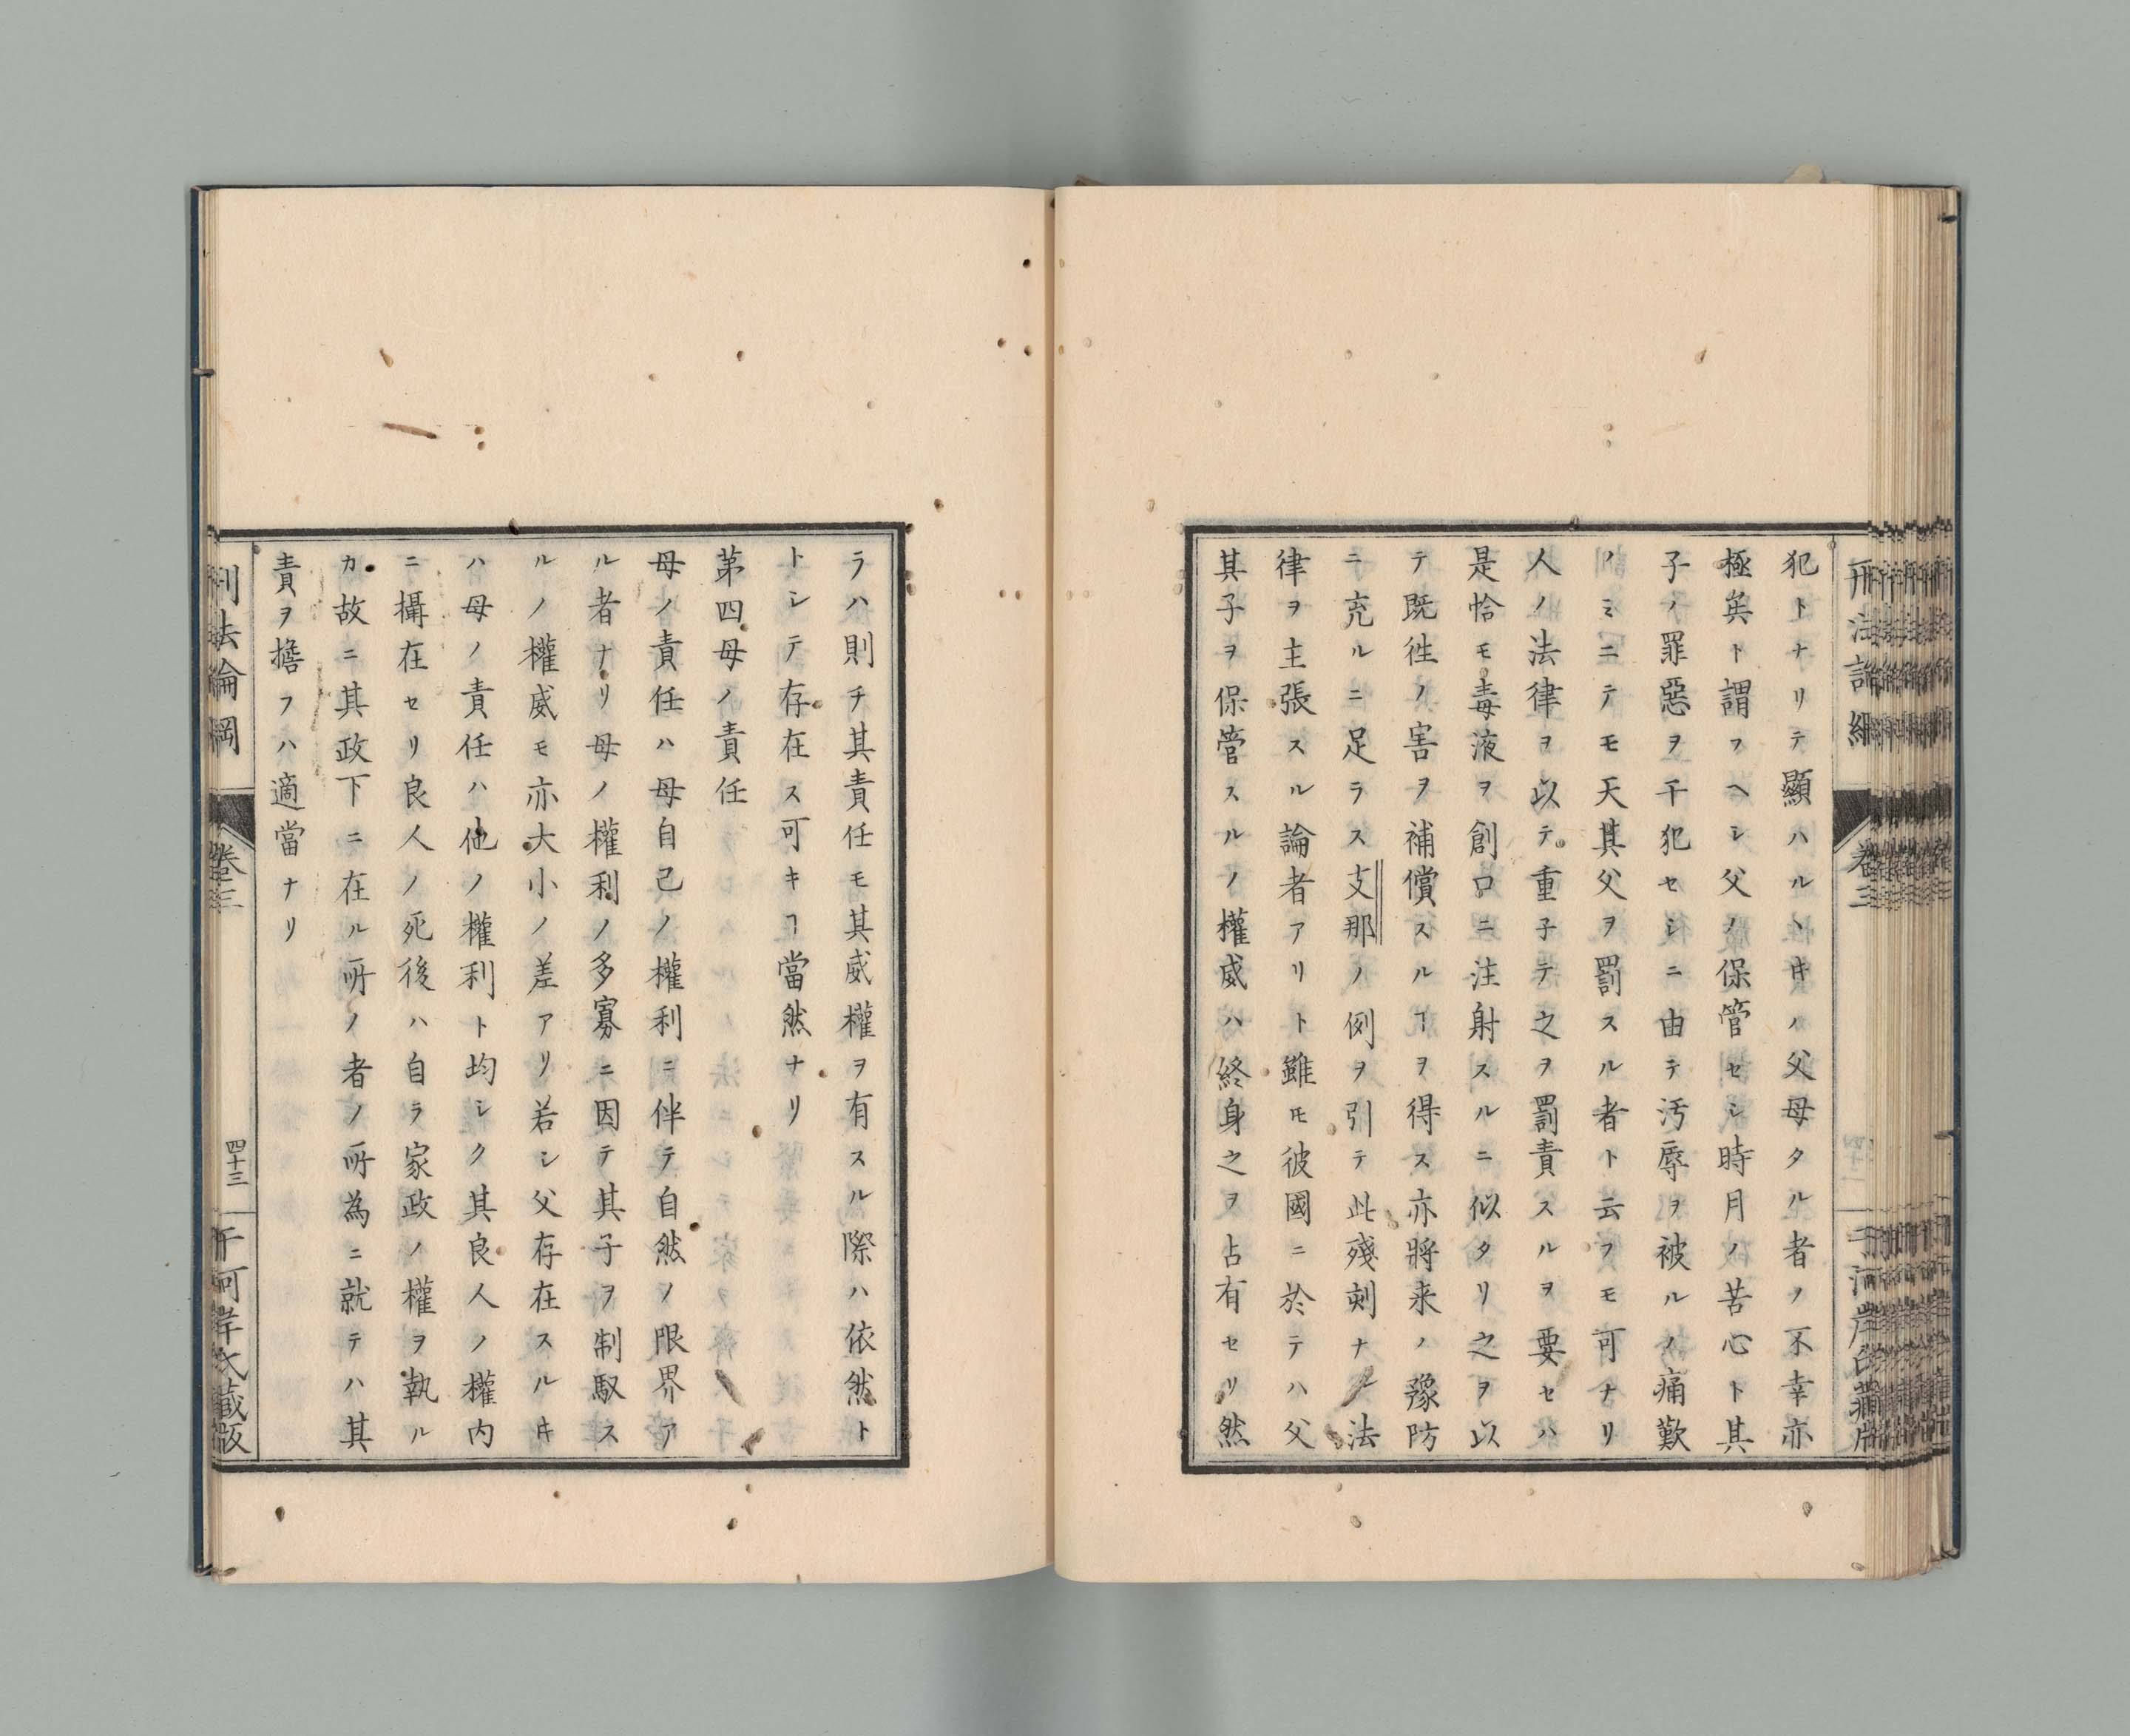 犯トナリテ顯ハルヽ𪜈ノ父母タル者ノ不幸亦
極矣ト謂フヘシ父ノ保管セシ時月ノ苦心ト其
子ノ罪惡ヲ干犯セシニ由テ汚辱ヲ被ルノ痛歎
ノミニテモ天其父ヲ罰スル者ト云フモ可ナリ
人ノ法律ヲ以テ重子テ之ヲ罰責スルヲ要セハ
是恰モ毒液ヲ創口ニ注射スルニ似タリ之ヲ以
テ既徃ノ害ヲ補償スルヿヲ得ス亦將来ノ豫防
ニ充ルニ足ラス支那ノ例ヲ引テ此殘刻ナル法
律ヲ主張スル論者アリト雖𪜈彼國ニ於テハ父
其子ヲ保管スルノ權威ハ終身之ヲ占有セリ然
ラハ則チ其責任モ其威權ヲ有スル際ハ依然ト
トシテ存在ス可キヿ當然ナリ
第四母ノ責任
母ノ責任ハ母自己ノ權利ニ伴テ自然ノ限界ア
ル者ナリ母ノ權利ノ多寡ニ因テ其子ヲ制馭ス
ルノ權威モ亦大小ノ差アリ若シ父存在スル𪜈
ハ母ノ責任ハ他ノ權利ト均シク其良人ノ權内
ニ攝在セリ良人ノ死後ハ自ラ家政ノ權ヲ執ル
カ故ニ其政下ニ在ル所ノ者ノ所為ニ就テハ其
責ヲ擔フハ適當ナリ
刑法論綱
卷三
四十三
干河岸氏藏版